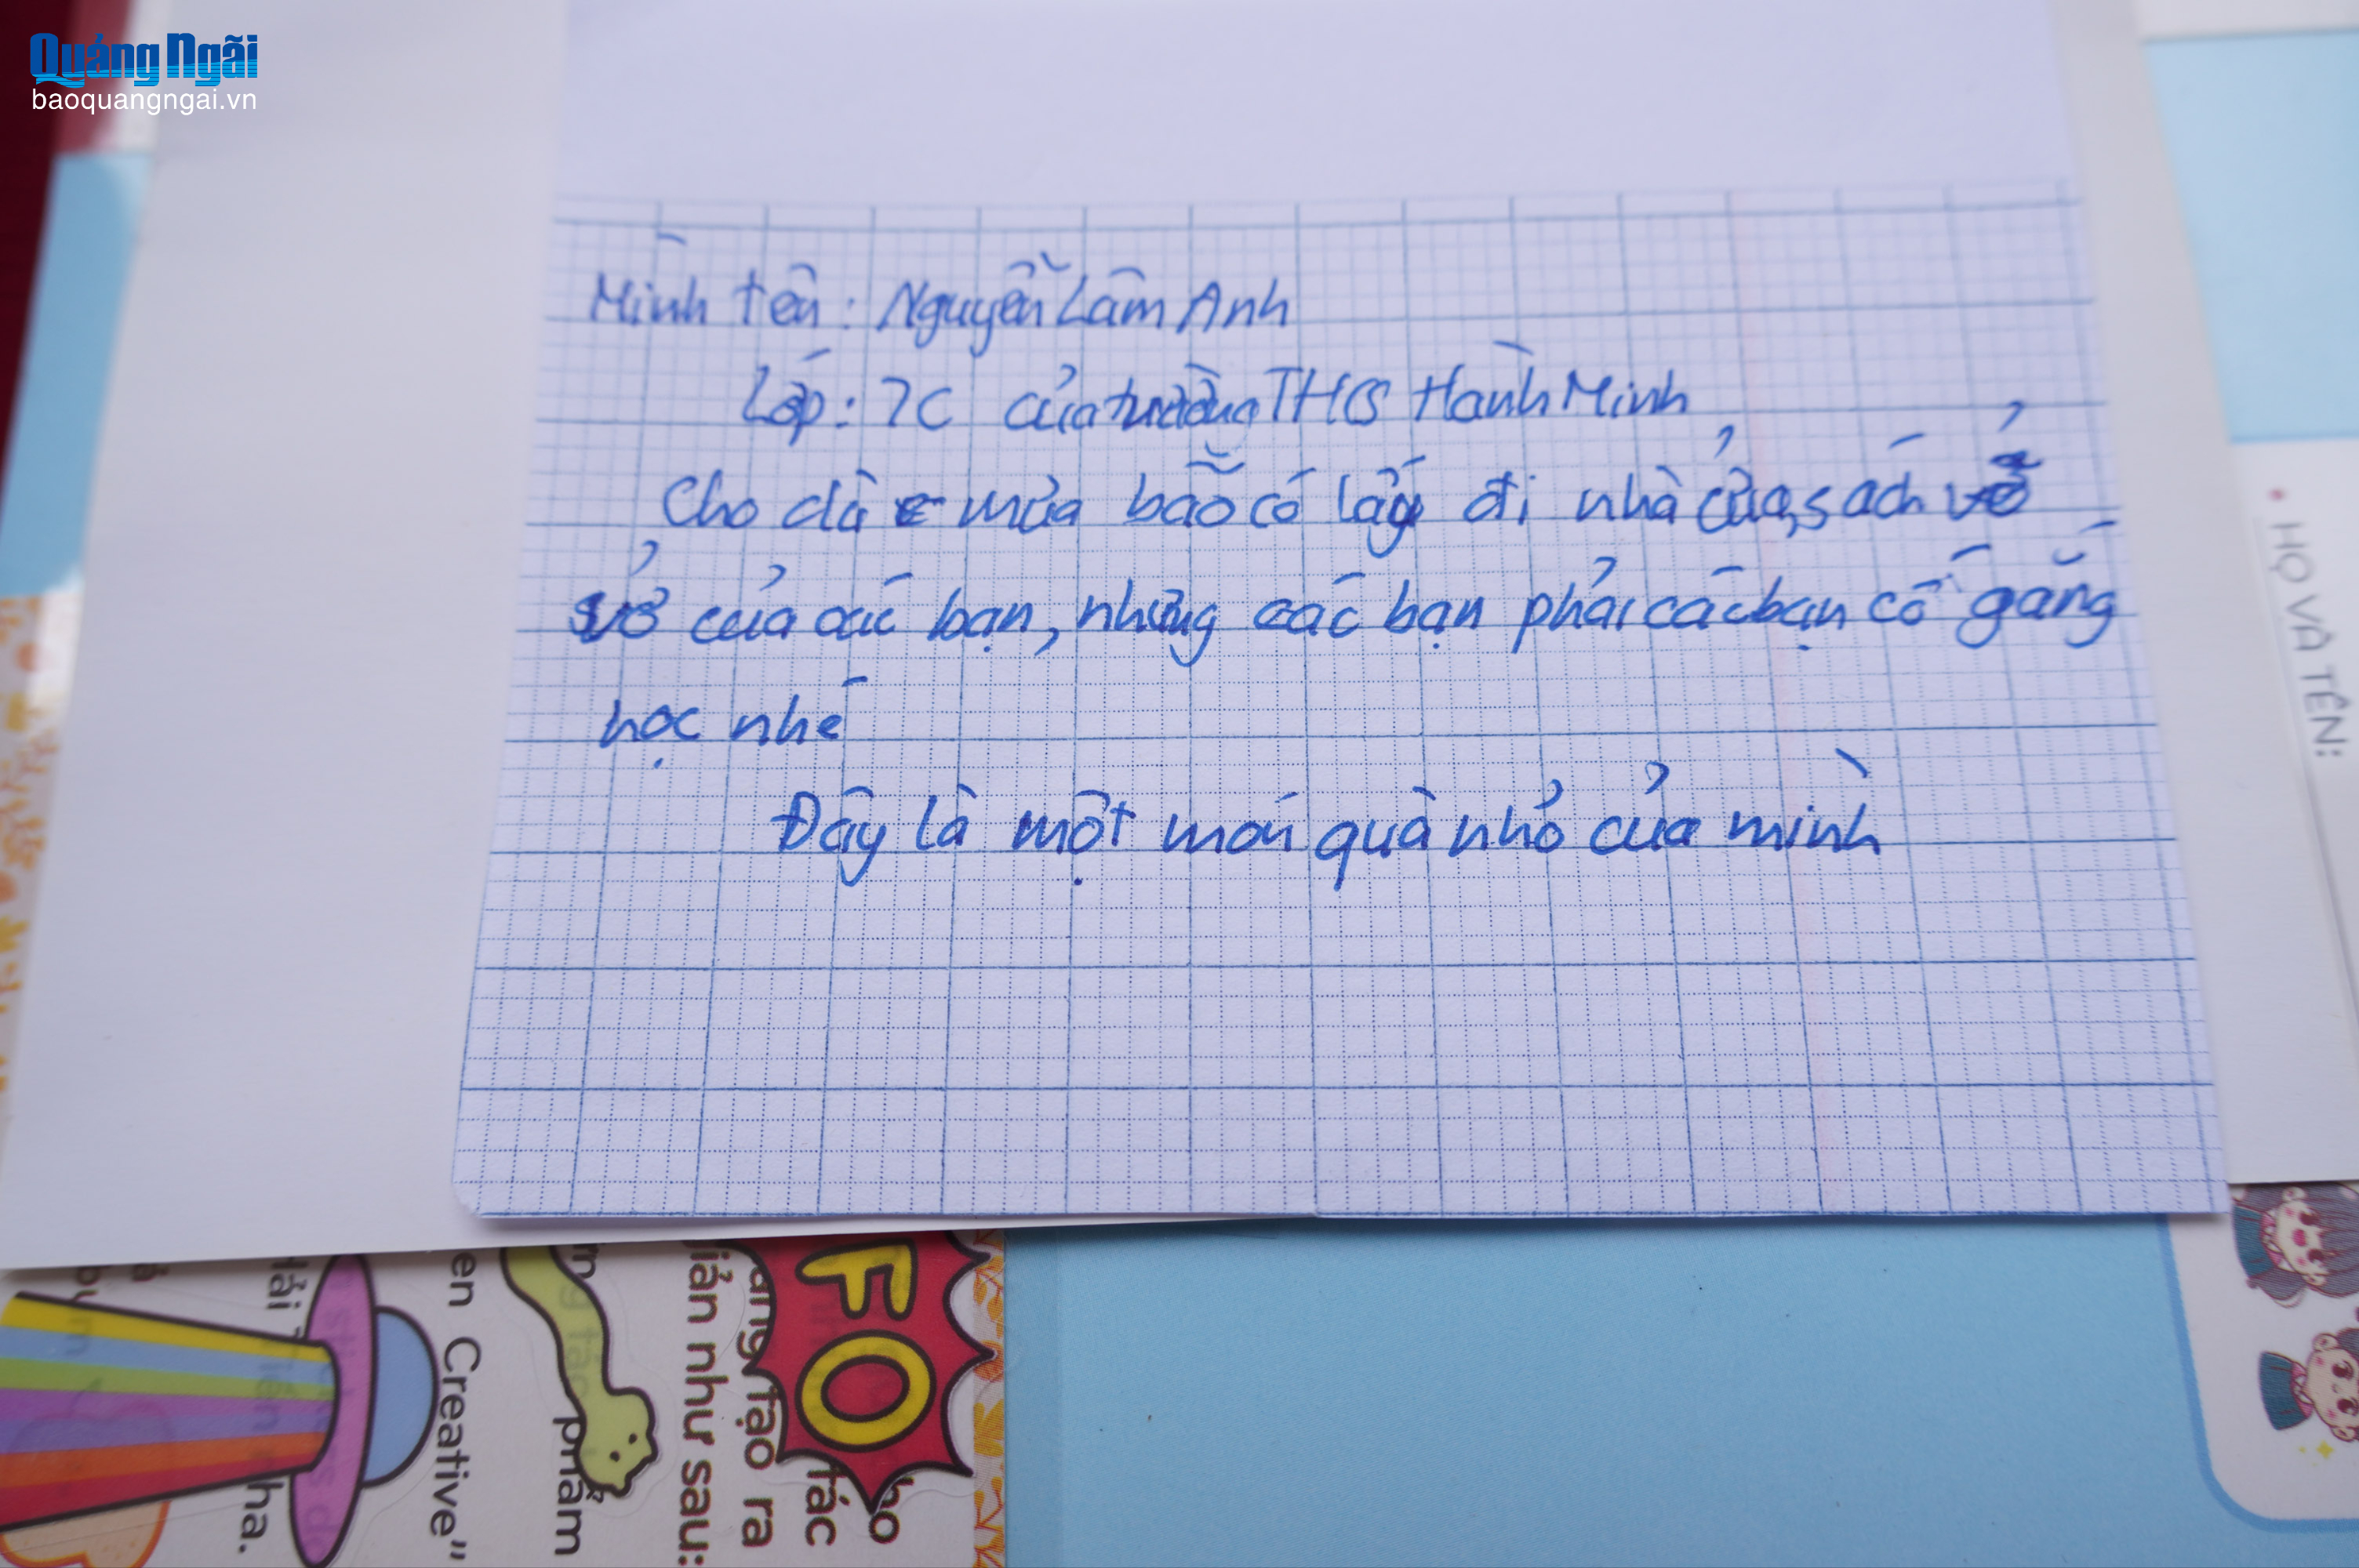 Quảng Ngãi
baoquangngai.vn
Mình tên: Nguyễn Lâm Anh
Lớp: 7C của trường THCS Hành Minh
Cho dù mưa bão có lấy đi nhà cửa, sách vở
vở của các bạn, nhưng các bạn phải các bạn cố gắng
học nhé
Đây là một món quà nhỏ của mình
HỌ VÀ TÊN:
FO
ra
tác
giản như sau:
phẩm
Creative"
nha.